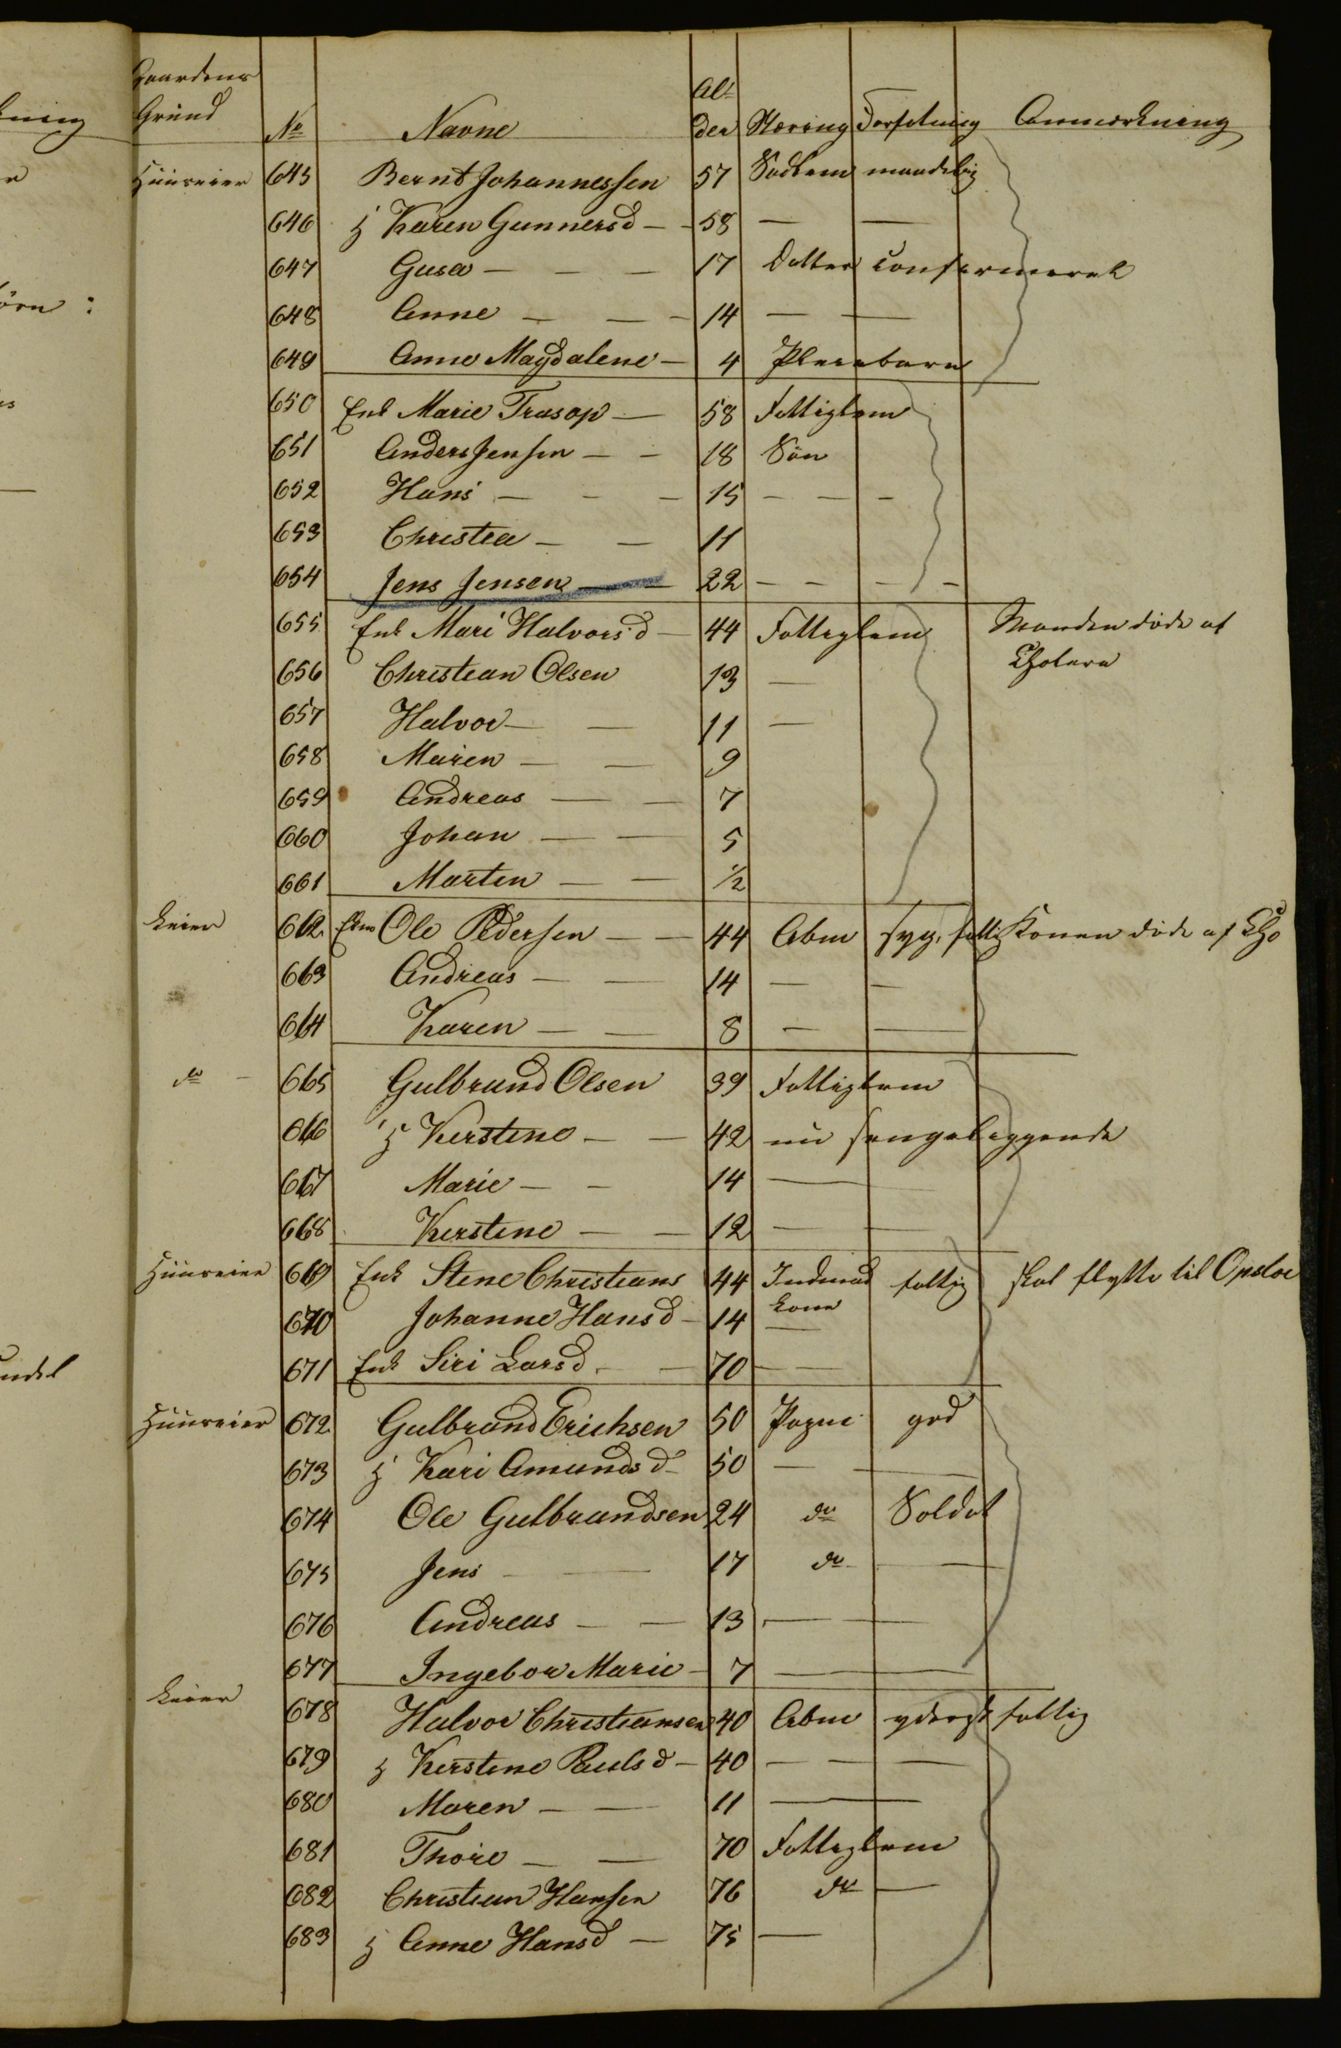 Gaardens
Grund № Navne Al-
der Næring Forfatning Anmærkning
Huuseier 645 Bernt Johannessen 57 maadelig
646 H Karen Gunnersd — 58 — —
647 Gusa — — — 17 Datter confirmeret
648 Anne — — — 14 — —
649 Anne Magdalene — 4 Pleiebarn
650 Enk Marie Trasop — 58 Fattiglem
651 Anders Jensen — — 18 Søn
652 Hans — — — 15 — — —
653 Christea — — 11
654 Jens Jensen — 22 — — — —
655 Enk Mari Halvorsd — 44 Fattiglem Manden døde af
Cholera
656 Christian Olsen 13 —
657 Halvor — — 11 —
658 Maren — — 9
659 Andreas — — 7
660 Johan — — 5
661 Marten — — 1/2
Leier 662 Ekm Ole Pedersen — — 44 Abm syg, fattig Konen døde af Cho
663 Andreas — — 14 — —
664 Karen — — 8 — —
do — 665 Gulbrand Olsen 39 Fattiglem
666 H Kerstine — — 42 nu sengeliggende
667 Marie — — 14 —
668 Kerstine — — 12 — —
Huuseier 669 Enk Stene Christians 44 fattig skal flytte til Opsloe
670 Johanne Hansd — 14 kone
671 Enk Siri Larsd — — 70 — —
Huuseier 672 Gulbrand Erichsen 50 god
673 H Kari Amundsd — 50 — —
674 Ole Gulbrandsen 24 do Soldat
675 Jens — — 17 do —
676 Andreas — — 13 — —
677 Ingebor Marie — 7 — —
Leier 678 Halvor Christiansen 40 Abm yderst fattig
679 H Kerstine Paulsd — 40 — — —
680 Maren — — 11 —
681 Thore — — 70 Fattiglem
682 Christian Hansen 76 do —
683 H Anne Hansd — 75 —